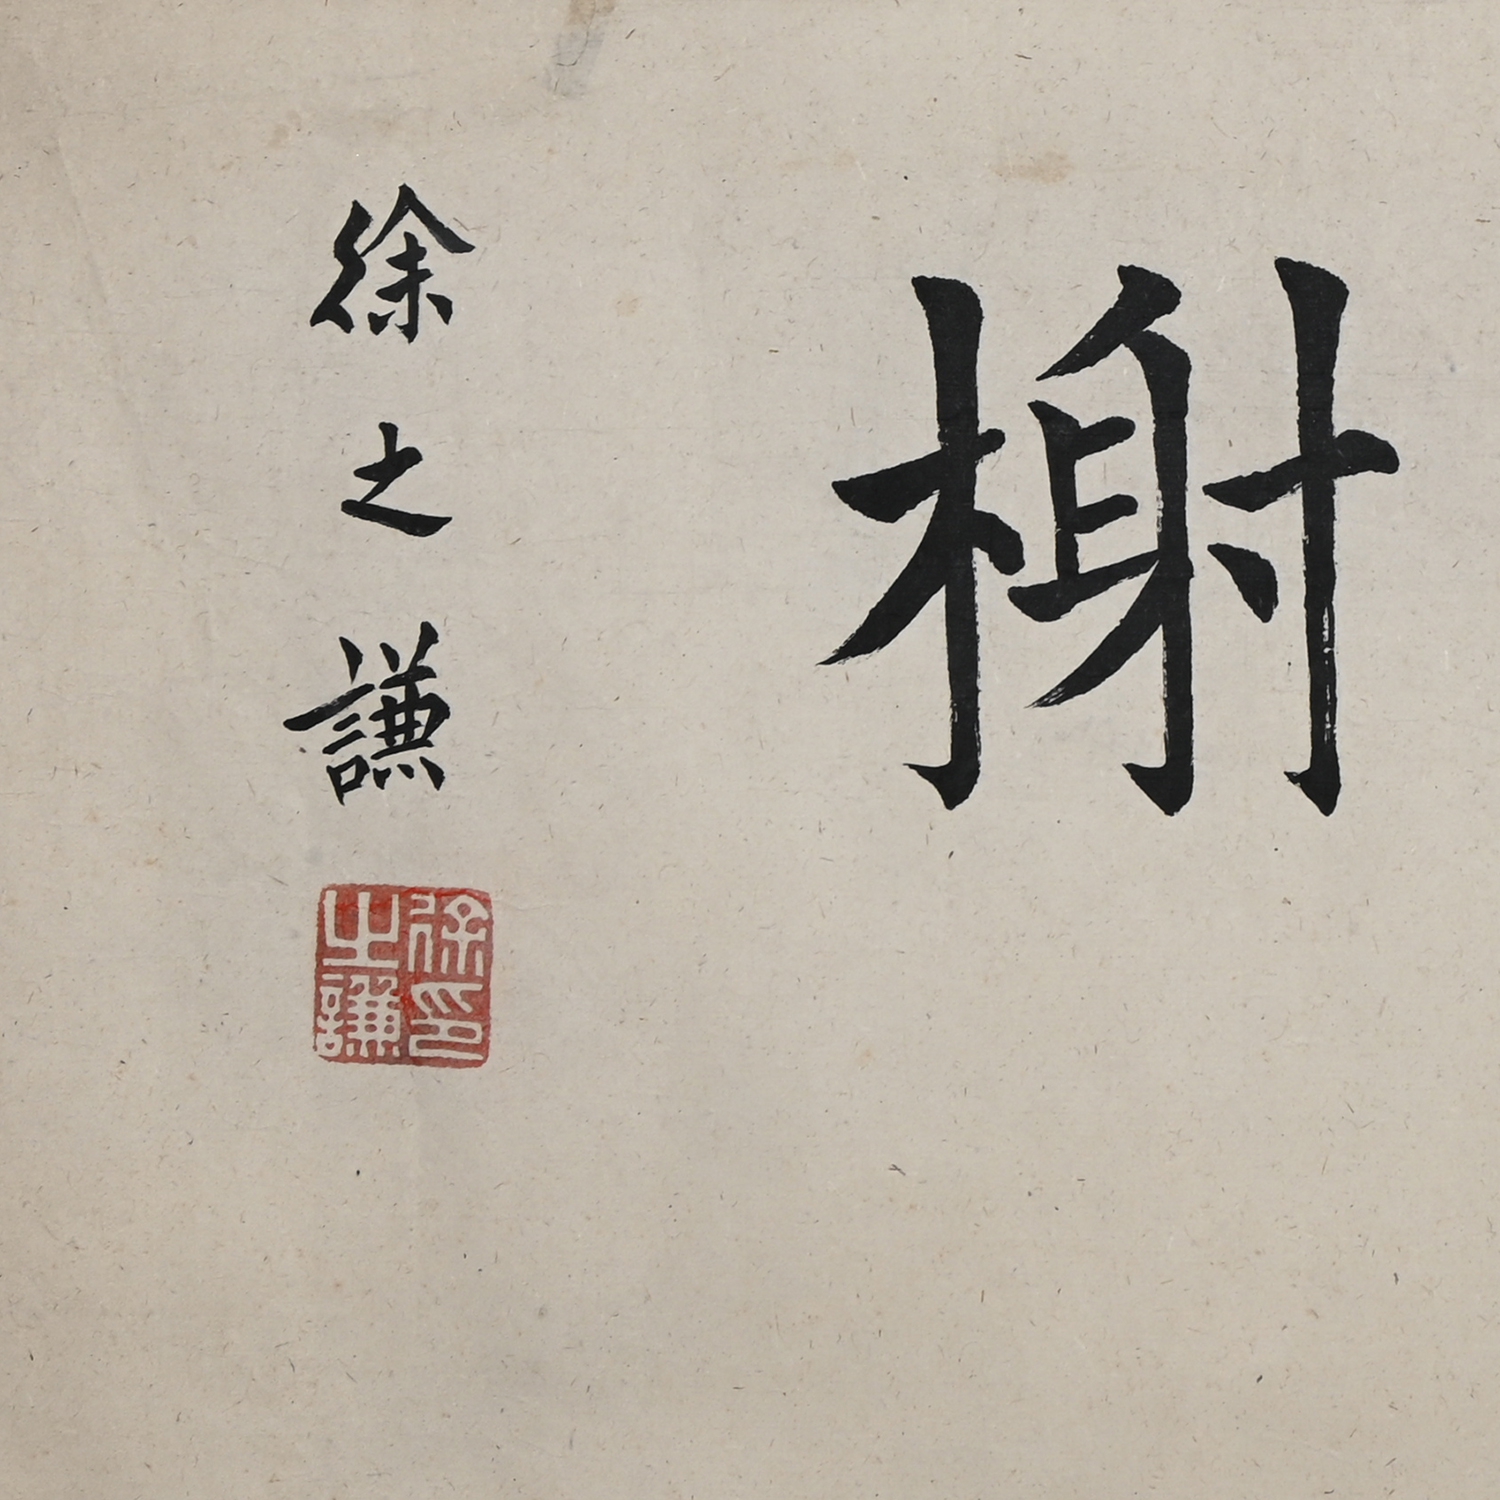 榭
徐之謙
徐印之謙